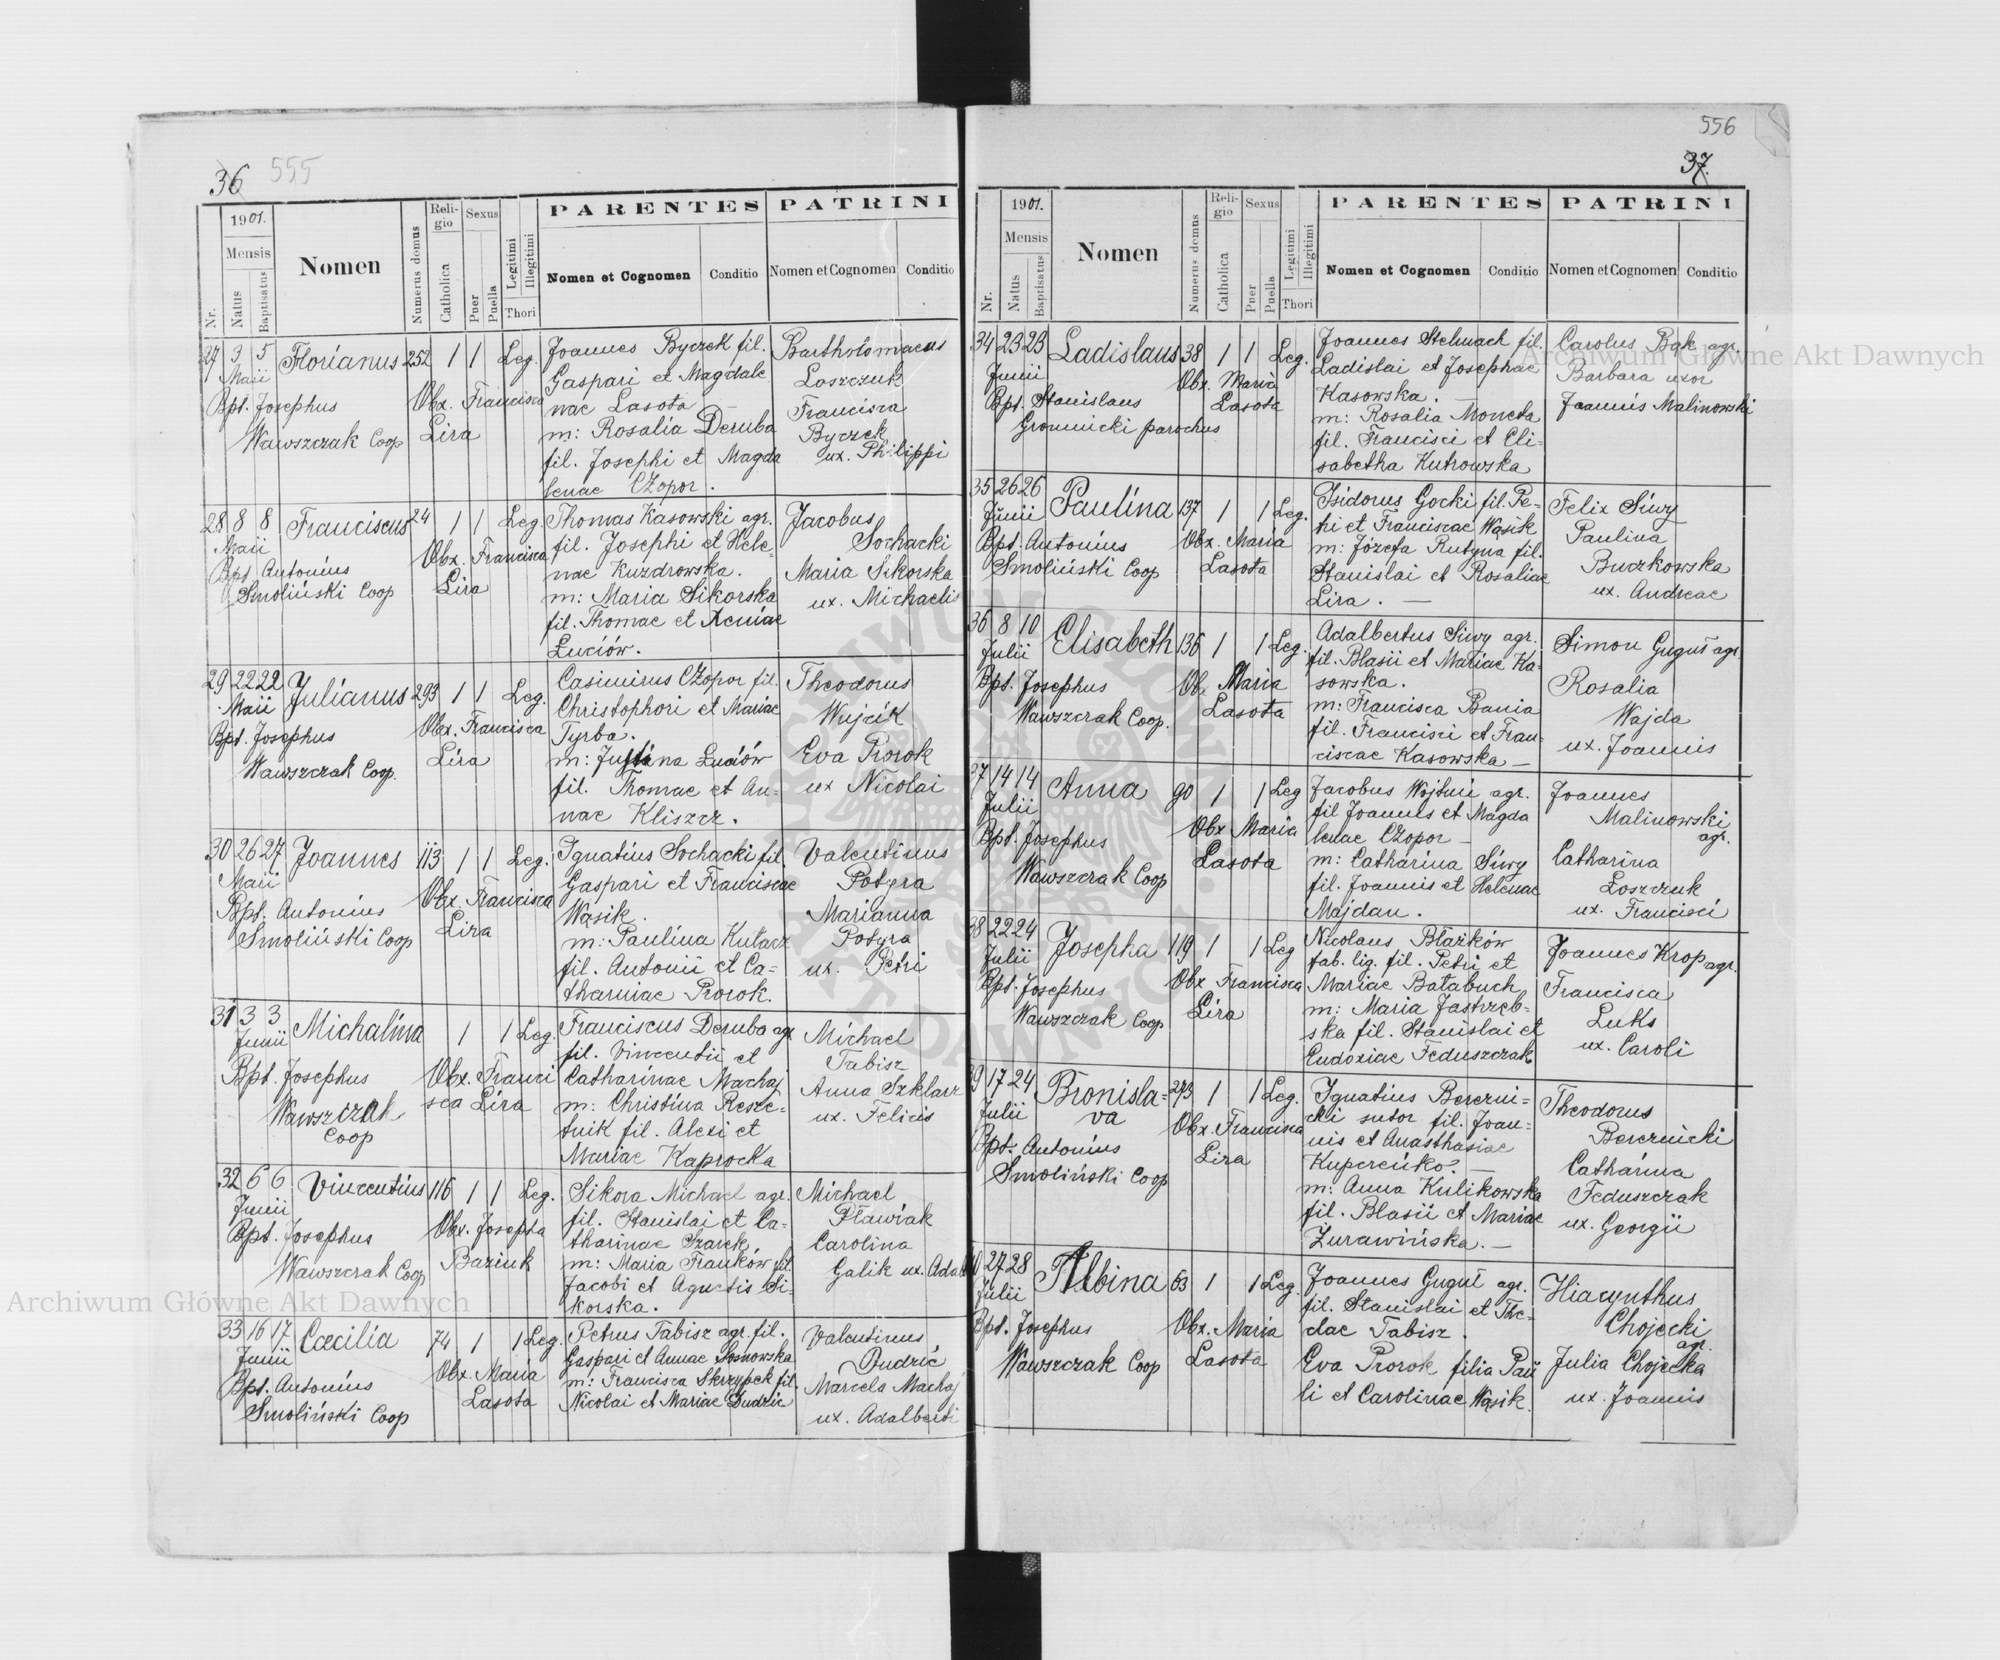 36 555
1901.
Mensis
Nr.
Natus
Baptisatus
Nomen
Numerus domus
Religio
Catholica
Sexus
Puer
Puella
Legitimi
Illegitimi
Thori
PARENTES
Nomen et Cognomen
Conditio
PATRINI
Nomen et Cognomen
Conditio
27 3 5 Florianus 252 1 1 Leg.
Maii
Bpt. Josephus
Wawszczak Coop
Obx. Francisca
Lira
Joannes Byczek fil.
Gaspari et Magdale
nae Lasota
m: Rosalia Deruba
fil. Josephi et Magda
lenae Czopor.
Bartholomaeus
Loszczuk
Francisca
Byczek
ux. Philippi
28 8 8 Franciscus 24 1 1 Leg.
Maii
Bpt Antonius
Smoliński Coop
Obx. Francisca
Lira
Thomas Kasowski agr.
fil. Josephi et Hele-
nae Kuzdrowska.
m: Maria Sikorska
fil. Thomae et Xeniae
Luciów.
Jacobus
Sochacki
Maria Sikorska
ux. Michaelis
29 22 22 Julianus 293 1 1 Leg.
Maii
Bpt. Josephus
Wawszczak Coop.
Obx. Francisca
Lira
Casimirus Czopor fil.
Christophori et Mariae
Tyrba.
m: Justina Luciów
fil. Thomae et An-
nae Kliszcz.
Theodorus
Wujcik
Eva Prorok
ux Nicolai
30 26 27 Joannes 113 1 1 Leg.
Maii
Bpt. Antonius
Smoliński Coop
Obx. Francisca
Lira
Ignatius Sochacki fil
Gaspari et Franciscae
Wąsik.
m: Paulina Kutacz
fil. Antonii et Ca=
tharniae Prorok.
Valentinus
Potyra
Marianna
Potyra
ux. Petri
31 3 3 Michalina 1 1 Leg.
Junii
Bpt. Josephus
Wawszczak
Coop
Obx. Franci
sca Lira
Franciscus Deruba agr
fil. Vincentii et
Catharinae Machaj
m: Christina Resze-
tnik fil. Alexi et
Mariae Kaprocka
Michael
Tabisz
Anna Szklarz
ux. Felicis
32 6 6 Vincentius 116 1 1 Leg.
Junii
Bpt. Josephus
Wawszczak Coop
Obx. Josepha
Baziuk
Sikora Michael agr.
fil. Stanislai et Ca-
tharinae Szarek
m: Maria Franków fil.
Jacobi et Agnetis Si-
korska.
Michael
Pławiak
Carolina
Galik ux. Adal
33 16 17 Cæcilia 74 1 1 Leg.
Junii
Bpt. Antonius
Smoliński Coop
Obx. Maria
Lasota
Petrus Tabisz agr. fil.
Gaspari et Annae Sosnowska
m: Francisca Skrzypek fil.
Nicolai et Mariae Dudzic
Valentinus
Dudzic
Marcela Machaj
ux. Adalberti
556
37.
1901.
Mensis
Nr.
Natus
Baptisatus
Nomen
Numerus domus
Religio
Catholica
Sexus
Puer
Puella
Legitimi
Illegitimi
Thori
PARENTES
Nomen et Cognomen
Conditio
PATRINI
Nomen et Cognomen
Conditio
34 23 23 Ladislaus 38 1 1 Leg.
Junii
Bpt. Stanislaus
Gromnicki parochus
Obx. Maria
Lasota
Joannes Stelmach fil.
Ladislai et Josephae
Kasowska.
m: Rosalia Moneta
fil. Francisci et Eli-
sabetha Kutrowska
Carolus Bąk agr.
Barbara uxor
Joannis Malinowski
35 26 26 Paulina 137 1 1 Leg.
Junii
Bpt. Antonius
Smoliński Coop
Obx. Maria
Lasota
Isidorus Gocki fil. Pe-
tri et Franciscae Wąsik
m: Józefa Rutyna fil.
Stanislai et Rosaliae
Lira. —
Felix Siwy
Paulina
Buczkowska
ux. Andreae
36 8 10 Elisabeth 136 1 1 Leg.
Julii
Bpt. Josephus
Wawszczak Coop.
Ob. Maria
Lasota
Adalbertus Siwy agr.
fil. Blasii et Mariae Ka-
sowska.
m: Francisca Bania
fil. Francisci et Fran-
ciscae Kasowska —
Simon Guguł agr
Rosalia
Wajda
ux. Joannis
37 14 14 Anna 90 1 1 Leg
Julii
Bpt. Josephus
Wawszczak Coop
Obx Maria
Lasota
Jacobus Wojtuń agr.
fil Joannis et Magda
lenae Czopor —
m: Catharina Siwy
fil. Joannis et Helenae
Majdan.
Joannes
Malinowski
agr.
Catharina
Loszczuk
ux. Francisci
38 22 24 Josepha 119 1 1 Leg
Julii
Bpt. Josephus
Wawszczak Coop
Obx Francisca
Lira
Nicolaus Błażków
fab. lig. fil. Petri et
Mariae Batabuch
m: Maria Jastrzęb-
ska fil. Stanislai et
Eudoxiae Feduszczak
Joannes Krop agr.
Francisca
Luks
ux. Caroli
39 17 24 Bronisla=
va 273 1 1 Leg.
Julii
Bpt. Antonius
Smoliński Coop
Obx. Francisca
Lira
Ignatius Berezni-
cki sutor fil. Joan-
nis et Anasthasiae
Kupereńko. —
m: Anna Kulikowska
fil. Blasii et Mariae
Zurawińska. —
Theodorus
Bereznicki
Catharina
Feduszczak
ux. Georgii
40 27 28 Albina 63 1 1 Leg.
Julii
Bpt. Josephus
Wawszczak Coop
Obx. Maria
Lasota
Joannes Guguł agr.
fil. Stanislai et The-
clae Tabisz.
Eva Prorok filia Pau
li et Carolinae Wąsik.
Hiacynthus
Chojecki
agr.
Julia Chojecka
ux. Joannis
Archiwum Główne Akt Dawnych
Archiwum Główne Akt Dawnych
ARCHIWUM GŁÓWNE AKT DAWNYCH